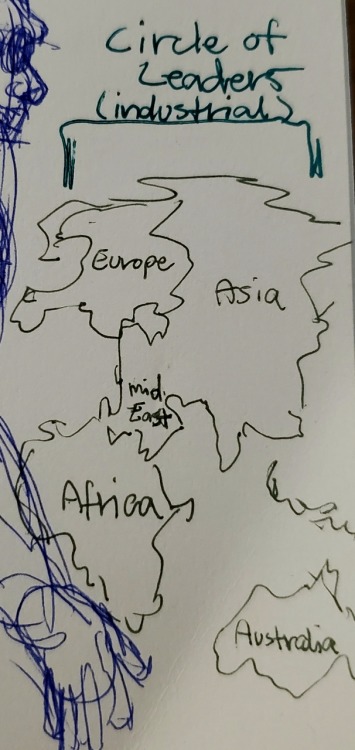 Circle of
Leaders
(industrial)
Europe
Asia
mid.
East
Africa
Australia